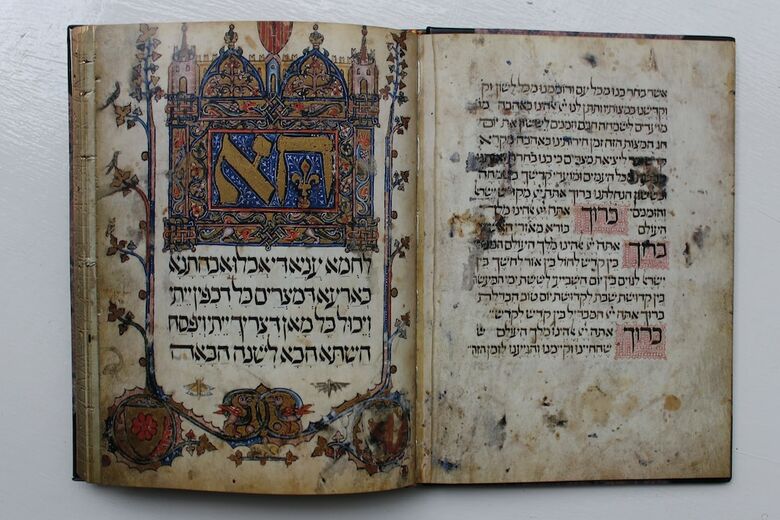 אשר בחר בנו מכל עם ורוממנו מכל לשון וק
וקדישנו במצותיו ותתן לנו יי אהינו באהבה מו
מועדים לשמחה חגים וזמנים לששון את יום
חג המצות הזה זמן חירותינו באהבה מקרא
ליציאת מצרים כי בנו בחרת
מכל העמים ומועדי קדשיך
ובששון הנחלתנו ברוך אתה יי מקדש ישרא
והזמנים ברוך אתה יי אהינו מלך
העולם בורא מאורי האש
ברוך אתה יי אהינו מלך העולם המב
בין קדש לחול בין אור לחשך בין
ישראל לגוים בין יום השביעי לששת ימי המעשה
בין קדושת שבת לקדושת יום טוב הבדלת
ברוך אתה יי המבדיל בין קדש לקדש
ברוך אתה יי אהינו מלך העולם ש
שהחיינו וקיימנו והגיענו לזמן הזה
הא
לחמא עניא די אכלו אבהתנא
בארעא דמצרים כל דכפין ייתי
ויכול כל מאן דצריך ייתי ויפסח
השתא הכא לשנה הבאה